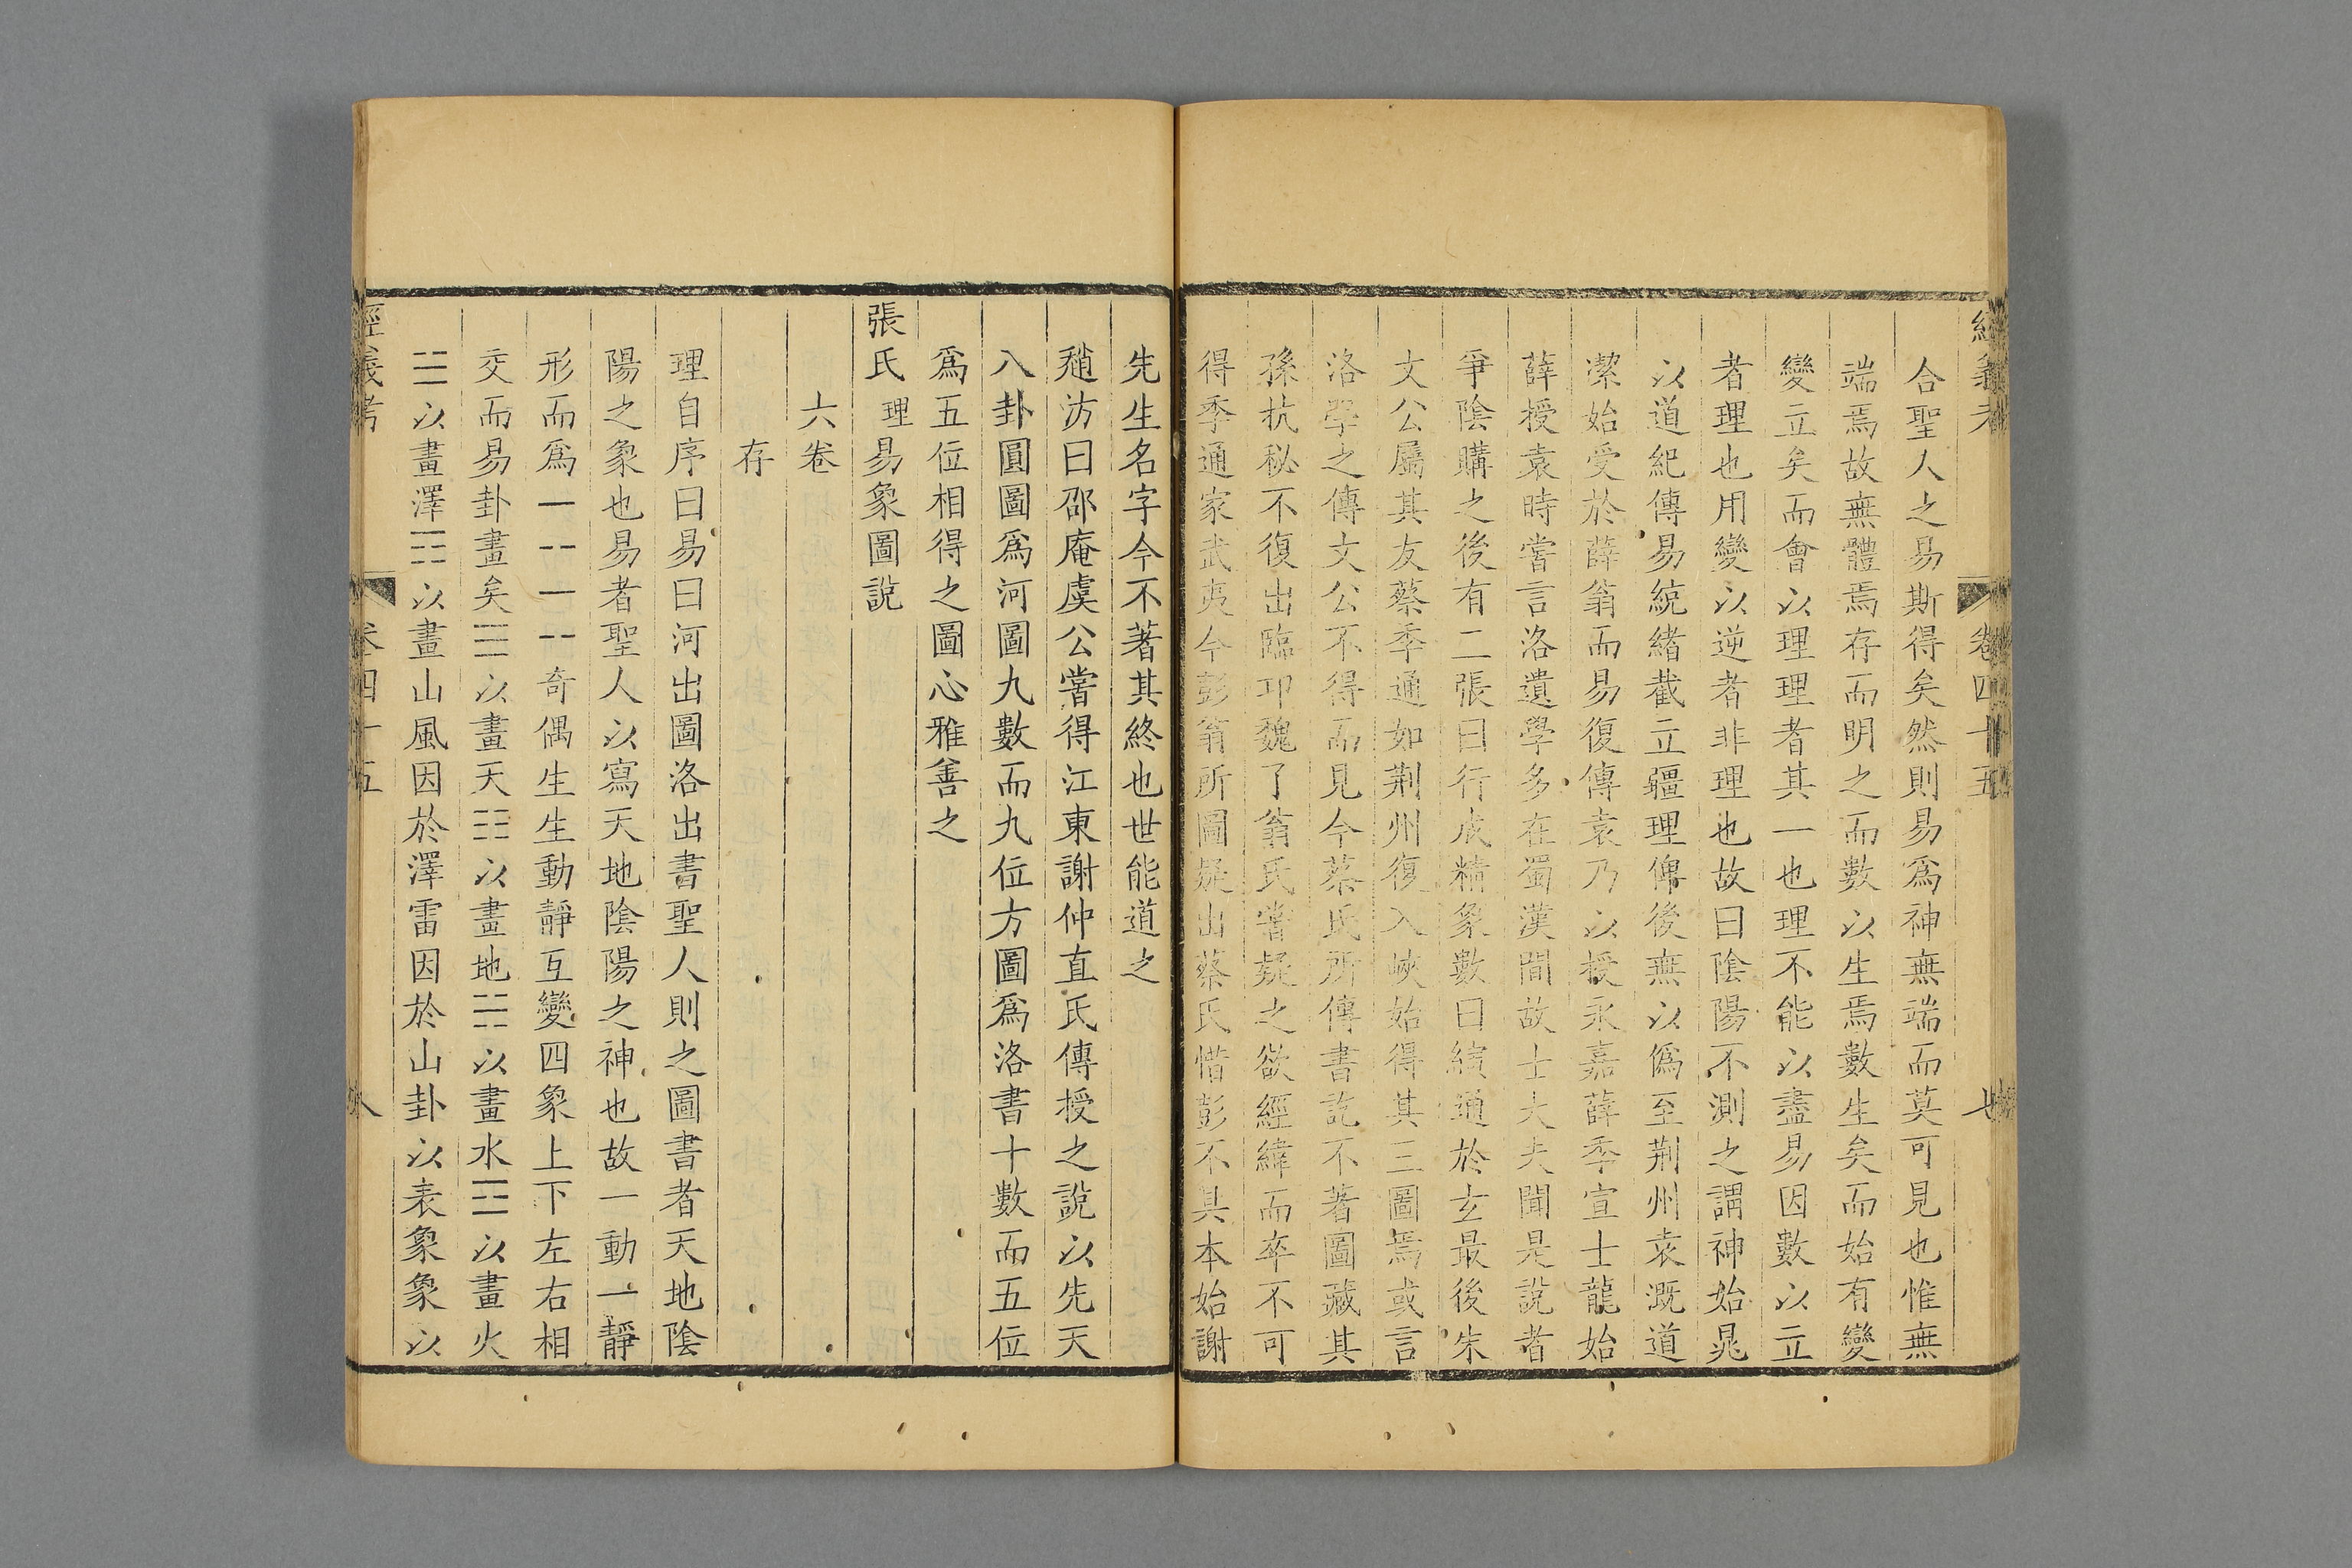 合聖人之易斯得矣然則易爲神無端而莫可見也惟無
端焉故無體焉存而明之而數以生焉數生矣而始有變
變立矣而會以理理者其一也理不能以盡易因數以立
者理也用變以逆者非理也故曰陰陽不測之謂神始晁
以道紀傳易統緒截立疆理俾後無以僞至荆州袁溉道
潔始受於薛翁而易復傳袁乃以授永嘉薛季宣士龍始
薛授袁時嘗言洛遺學多在蜀漢間故士大夫聞是說者
爭陰購之後有二張曰行成精象數曰縯通於玄最後朱
文公屬其友蔡季通如荆州復入峽始得其三圖焉或言
洛學之傳文公不得而見今蔡氏所傳書訖不著圖藏其
孫抗秘不復出臨邛魏了翁氏嘗疑之欲經緯而卒不可
得季通家武夷今彭翁所圖疑出蔡氏惜彭不具本始謝
先生名字今不著其終也世能道之
趙汸曰邵庵虞公嘗得江東謝仲直氏傳授之說以先天
八卦圓圖爲河圖九數而九位方圖爲洛書十數而五位
爲五位相得之圖心雅善之
張氏理易象圖說
六卷
存
理自序曰易曰河出圖洛出書聖人則之圖書者天地陰
陽之象也易者聖人以寫天地陰陽之神也故一動一靜
形而爲⚊⚋⚊⚋奇偶生生動靜互變四象上下左右相
交而易卦畫矣☰以畫天☷以畫地☵以畫水☲以畫火
☱以畫澤☶以畫山風因於澤雷因於山卦以表象象以
經義考 卷四十五